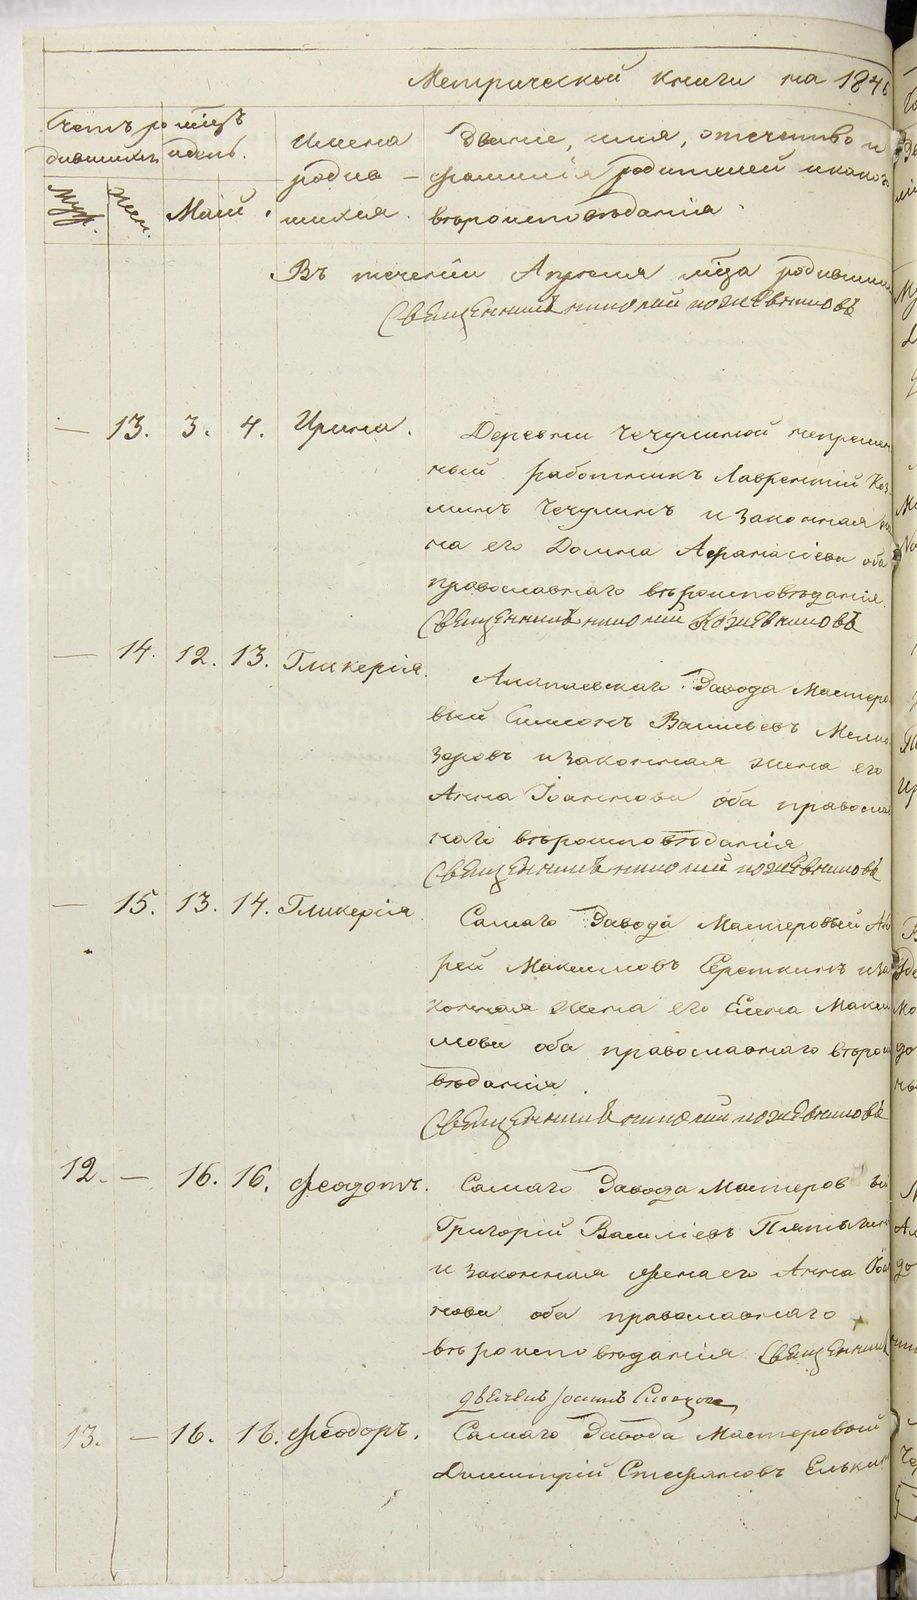 Метрической книги на 184
Счетъ родившихся
мѣсяцъ и день.
Муж.
Жен.
Маій.
Имена родившихся.
Званіе, имя, отечество и
фамилія родителей и какого
вѣроисповѣданія.
Въ теченіи Апреля мѣца родившихся
Священникъ Николай Кожевниковъ
— 13. 3. 4. Ирина.
Деревни Чечулиной непремен
ный работникъ Лаврентій Коз
минъ Чечулинъ и законная же
на его Домна Афанасіева оба
православнаго вѣроисповѣданія.
Священникъ Николай Кожевниковъ
— 14. 12. 13. Гликерія.
Алапаевскаго Завода Мастеро
вый Симеонъ Васильевъ
зеровъ и законная жена его
Анна Іоаннова оба правосла
наго вѣроисповѣданія
Священникъ Николай Кожевниковъ
— 15. 13. 14. Гликерія.
Самаго Завода Мастеровый Ан
рей Максимовъ Сереткинъ и за
конная жена его Елена Макси
мова оба православнаго вѣроис
вѣданія.
Священникъ Николай Кожевниковъ
12. — 16. 16. Феодотъ.
Самаго Завода Мастеров
Григорій Василіевъ
и законная жена его Анна Іоа
нова оба православнаго
вѣроисповѣданія Священникъ
Іоаннъ
13. — 16. 16. Феодоръ.
Самаго Завода Мастеровый
Димитрій Стефановъ Елькин